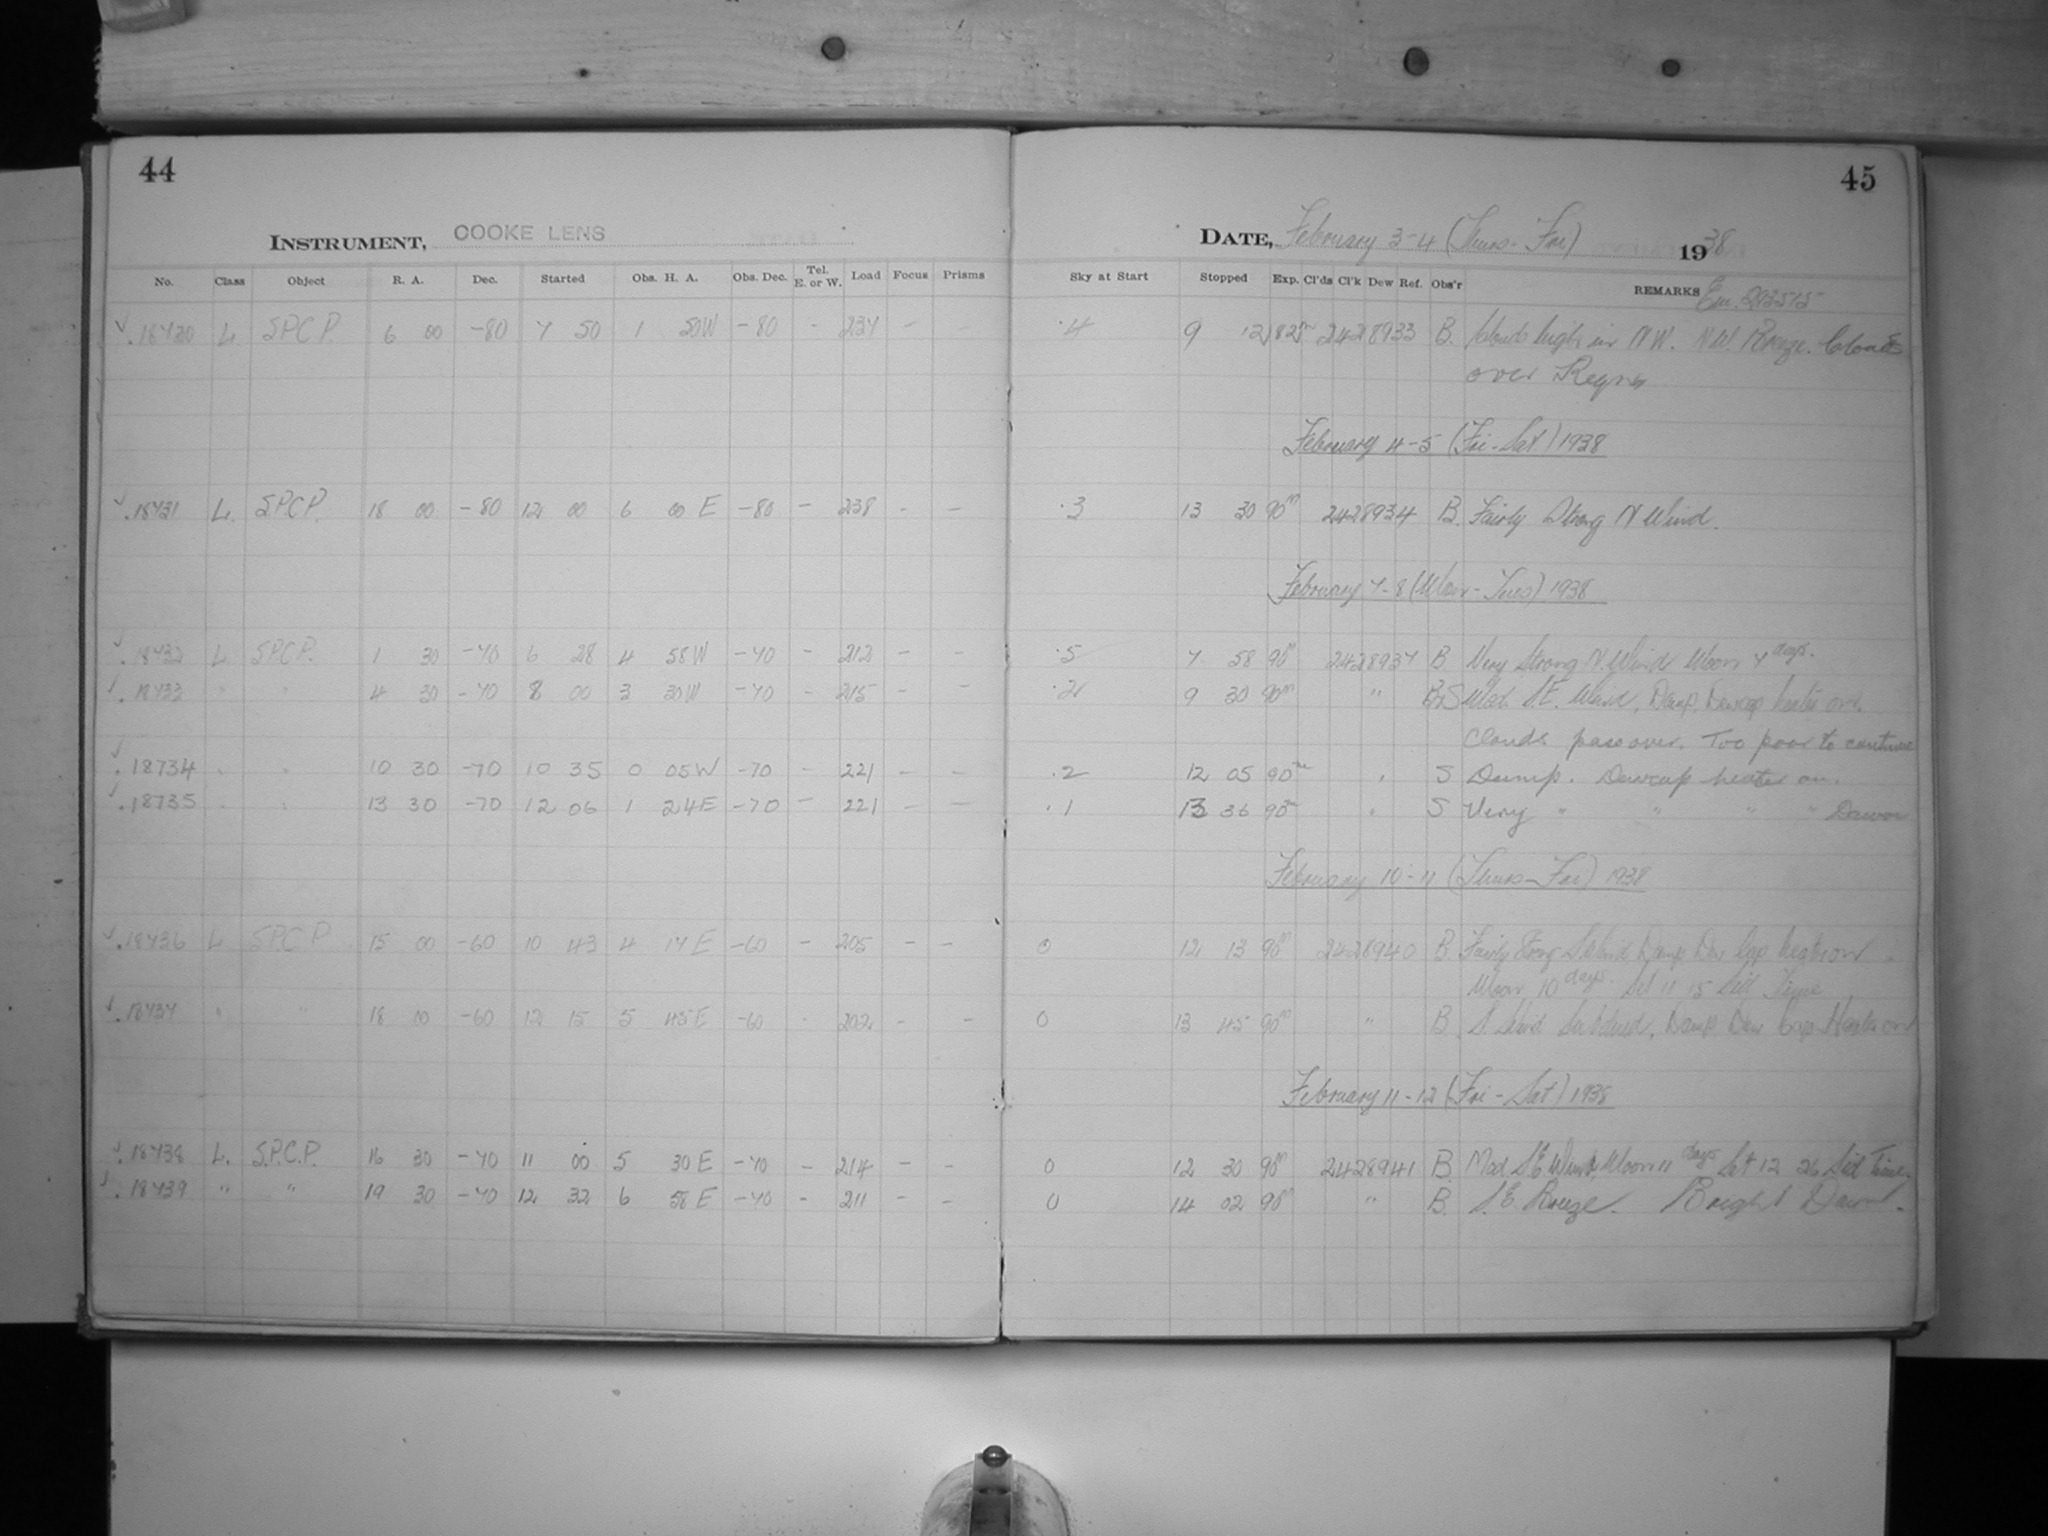 44
INSTRUMENT, COOKE LENS
No. Class Object R. A. Dec. Started Obs. H. A. Obs. Dec. Tel. E. or W. Load Focus Prisms
18730 L. S.P.C.P. 6 00 -80 7 50 1 50W -80 - 237 - -
18731 L. S.P.C.P. 18 00 -80 12 00 6 00 E -80 - 238 - -
18732 L S.P.C.P. 1 30 -70 6 28 4 58W -70 - 212 - -
18733 " " 4 30 -70 8 00 3 30W -70 - 215 - -
18734 " " 10 30 -70 10 35 0 05W -70 - 221 - -
18735 " " 13 30 -70 12 06 1 24E -70 - 221 - -
18736 L S.P.C.P. 15 00 -60 10 43 4 17E -60 - 205 - -
18737 " " 18 00 -60 12 15 5 45E -60 - 202 - -
18738 L. S.P.C.P. 16 30 -70 11 00 5 30 E -70 - 214 - -
18739 " " 19 30 -70 12 32 6 58 E -70 - 211 - -
45
DATE, February 3-4 (Thurs-Fri) 1938
Sky at Start Stopped Exp. Cl'ds Cl'k Dew Ref. Obs'r REMARKS
.4 9 12 82m 2428933 B. Clouds high in NW. N.W. Breeze. Clouds
over Region
February 4-5 (Fri-Sat) 1938
.3 13 30 90m 2428934 B. Fairly Strong N Wind.
February 7-8 (Mon-Tues) 1938
.5 7 58 90m 2428937 B Very Strong N. Wind Moon 7 days.
.2 9 30 90m " B+S Mod. S.E. Wind, Damp. Dewcap heater on.
Clouds pass over. Too poor to continue
.2 12 05 90m " S Damp. Dewcap heater on.
.1 13 36 90m " S Very " " " " Dawn
February 10-11 (Thurs-Fri) 1938
0 12 13 90m 2428940 B. Fairly Strong S Wind Damp. Dew Cap heater on.
Moon 10 days. Set 11 15 Sid Time
0 13 45 90m " B. S. Wind Subdued. Damp. Dew Cap Heater on
February 11-12 (Fri-Sat) 1938
0 12 30 90m 2428941 B. Mod S.E. Wind, Moon 11 days Set 12 26 Sid Time.
0 14 02 90m " B. S.E. Breeze. Bright Dawn.